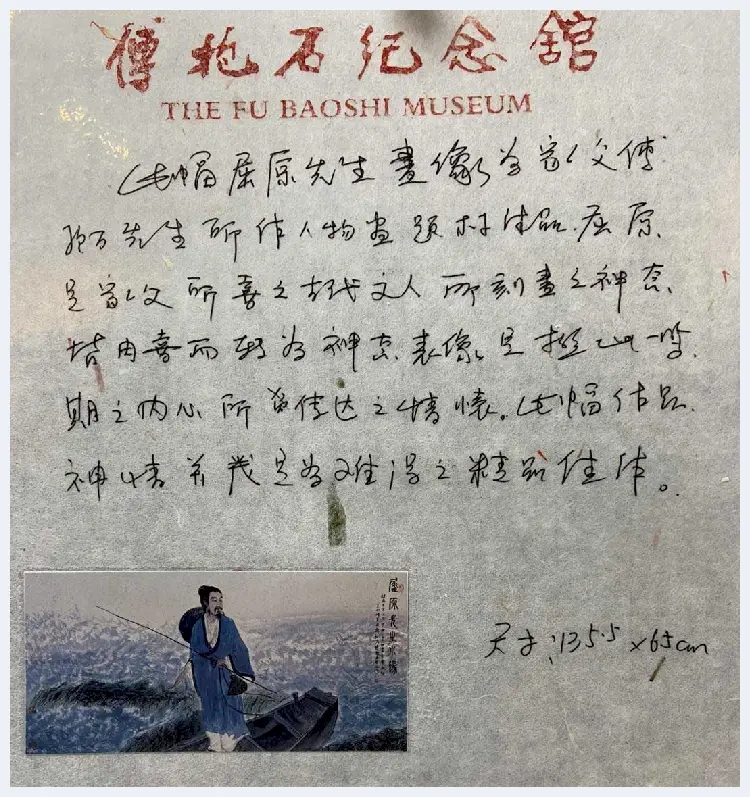 傅抱石纪念馆
THE FU BAOSHI MUSEUM
此幅屈原先生畫像为家父傅
抱石先生所作人物画题材佳品.屈原
是家父所喜之古代文人所刻畫之神态
皆由喜而转为神态表像是抱此一时
期之内心所传达之情懐。此幅作品
神情并茂是为难得之精品佳作。
尺寸:135.5×65cm
屈原先生像